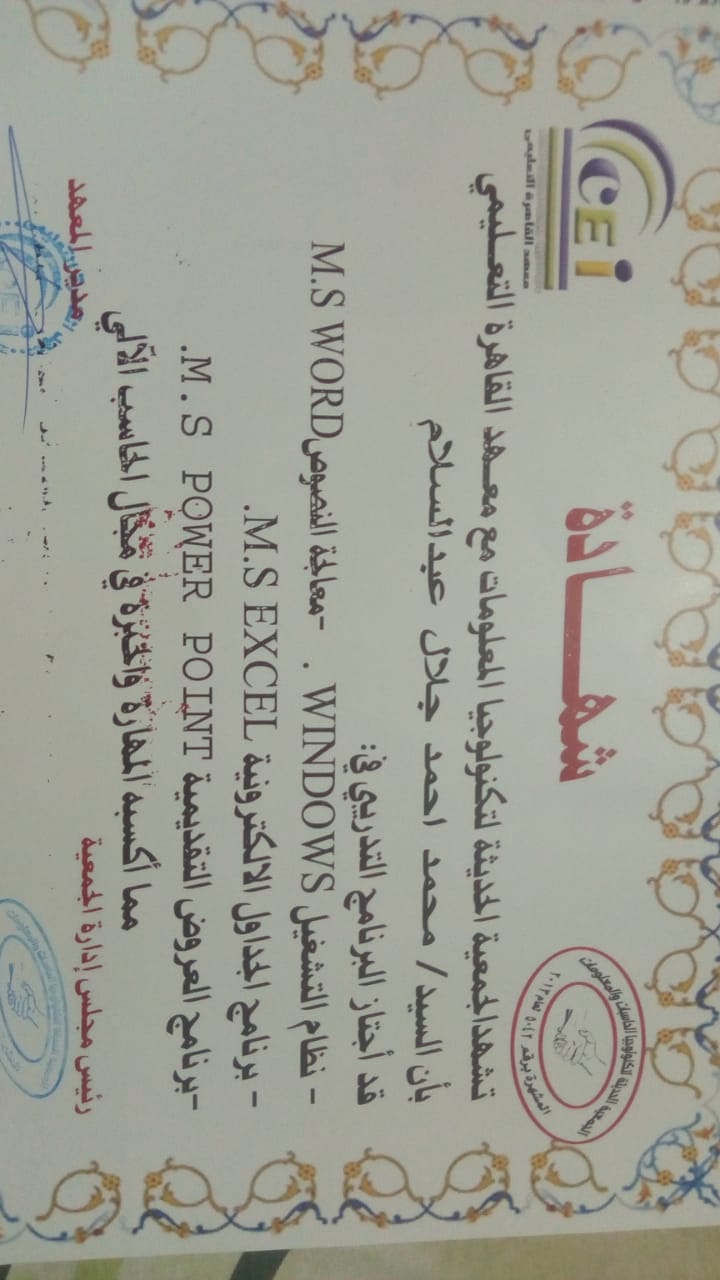 CEi
معهد القاهرة التعليمى
الجمعية الحديثة لتكنولوجيا الحاسبات والمعلومات
المشهرة برقم ٥٠٤٢ لسنة ٢٠١٢
شهــادة
تشهد الجمعية الحديثة لتكنولوجيا المعلومات مع معهد القاهرة التعليمي
بأن السيد/ محمد احمد جلال عبد السلام
قد أجتاز البرنامج التدريبي في:
- نظام التشغيل WINDOWS . -معالجة النصوص M.S WORD
- برنامج الجداول الالكترونية M.S EXCEL.
-برنامج العروض التقديمية M.S POWER POINT.
مما أكسبه المهارة والخبرة في مجال الحاسب الآلي
رئيس مجلس إدارة الجمعية
مدير المعهد